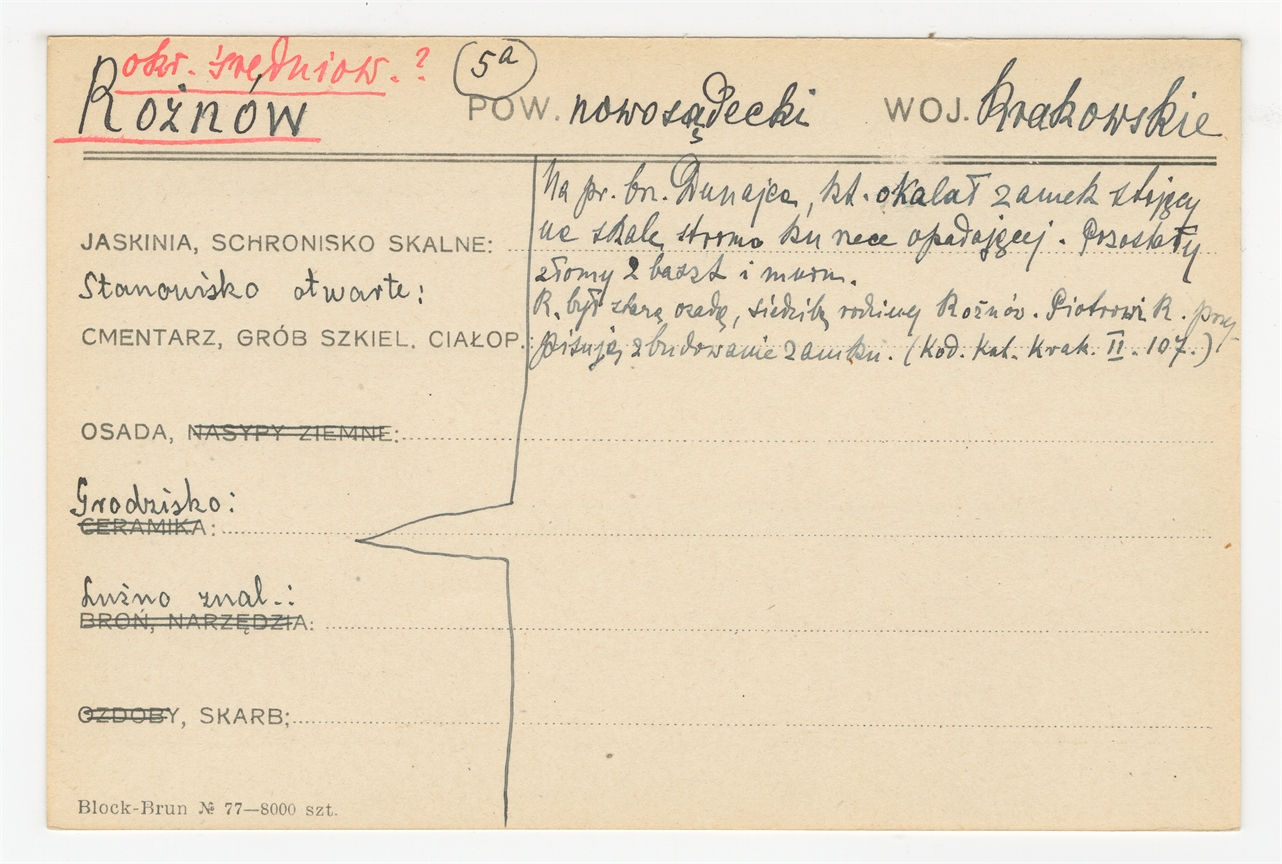 okr. średniow.?
5a
Rożnów POW. nowosądecki WOJ. Krakowskie
Na pr. brz. Dunajca, kt. okalał zamek stojący
na skale, stromo ku rzece opadającej. Pozostały
złomy 2 baszt i muru.
R. był starą osadą, siedzibą rodzinną Rożnów. Piotrowi R. przy-
pisują zbudowanie zamku. (Kod. Kat. Krak. II. 107.)
JASKINIA, SCHRONISKO SKALNE:
Stanowisko otwarte:
CMENTARZ, GRÓB SZKIEL. CIAŁOP.:
OSADA, NASYPY ZIEMNE:
Grodzisko:
CERAMIKA:
Luźno znal.:
BROŃ, NARZĘDZIA:
OZDOBY, SKARB:
Block-Brun № 77—8000 szt.